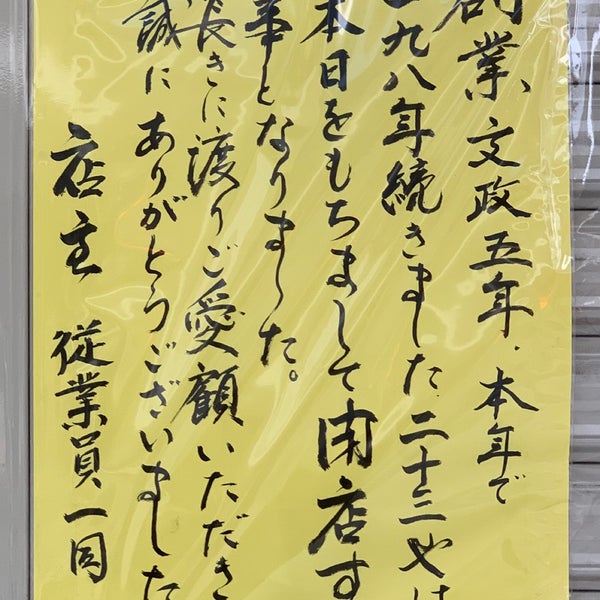 創業文政五年・本年で
一九八年続きました二十三やは
本日をもちまして閉店す
事となりました。
長きに渡りご愛顧いただき
誠にありがとうございました
店主 従業員一同